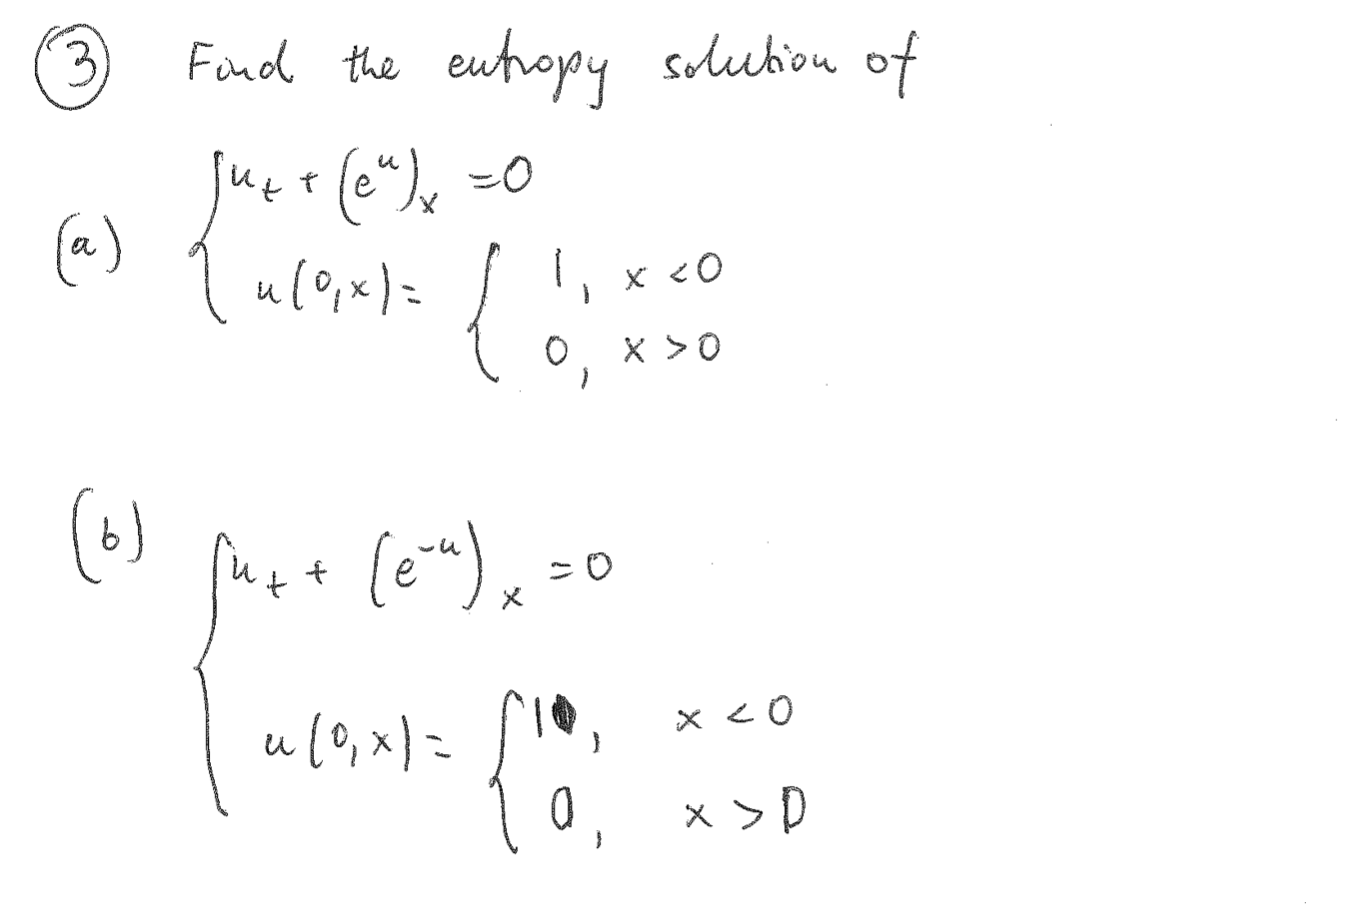 ③ Find the entropy solution of
(a) { u_t + (e^u)_x = 0
u(0,x) = { 1, x < 0
0, x > 0
(b) { u_t + (e^{-u})_x = 0
u(0,x) = { 1, x < 0
0, x > 0